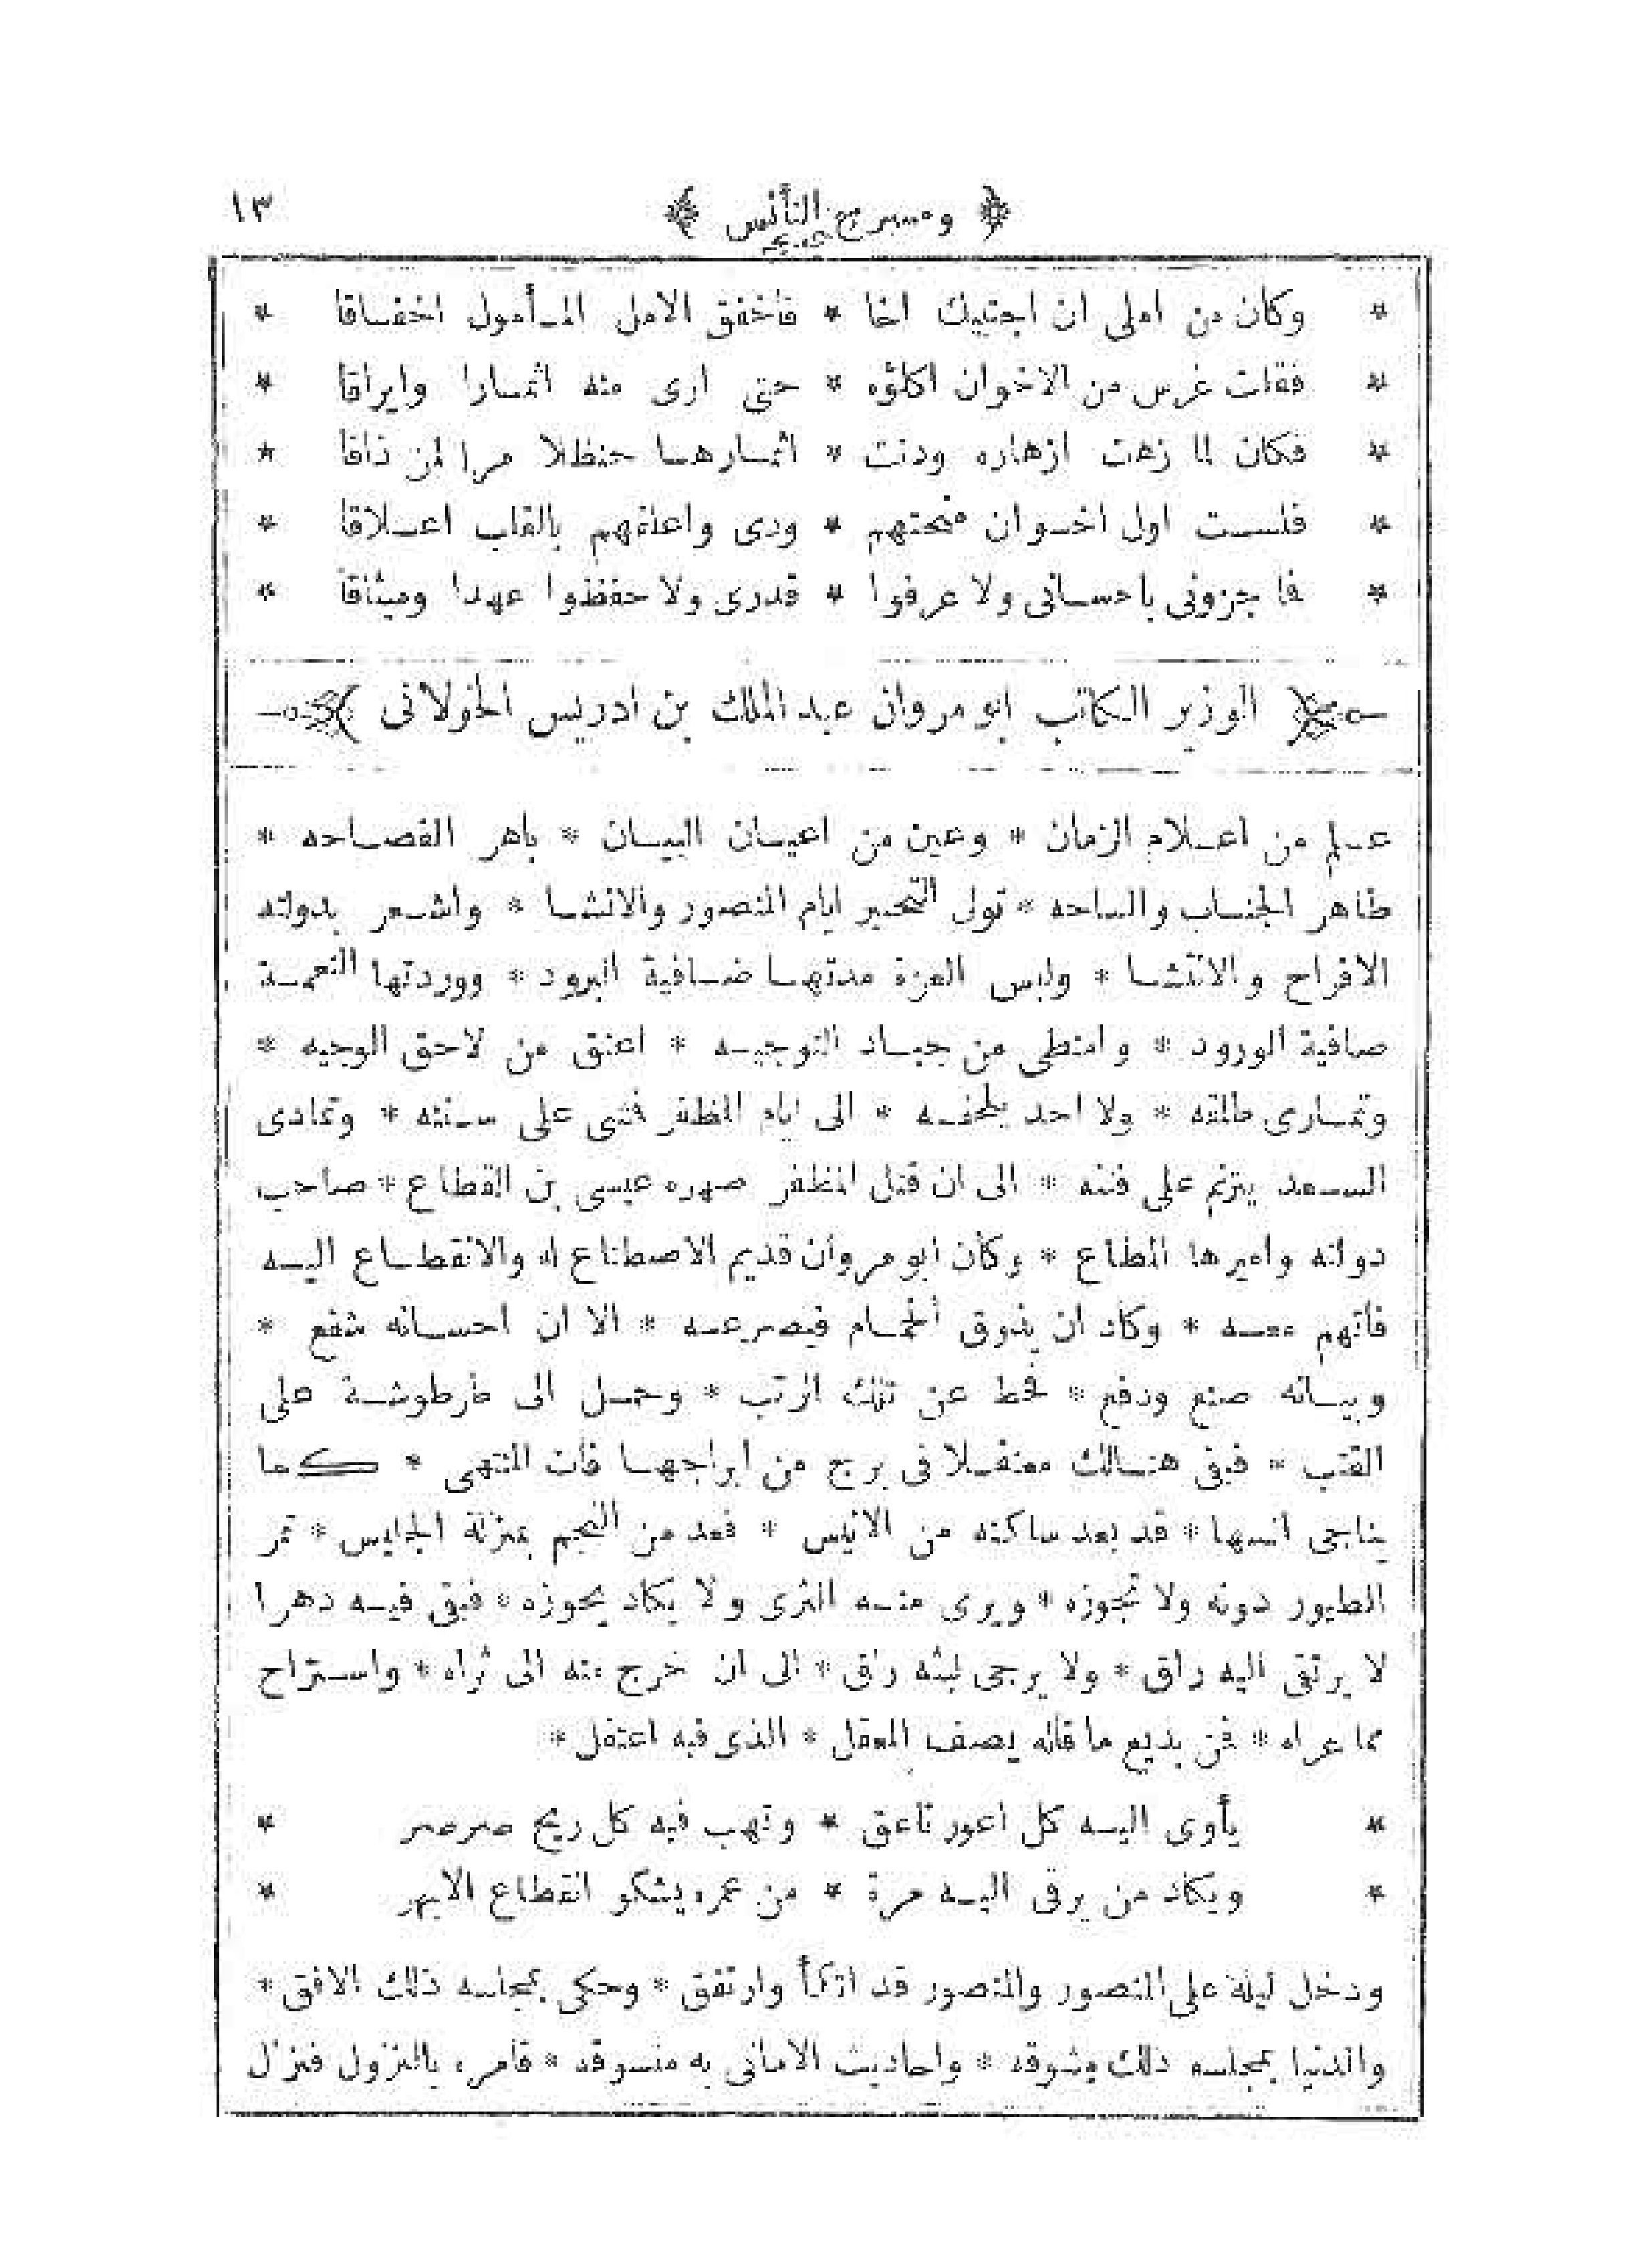 ﴿ ومسرح التأنس ﴾ ١٣
* وكان من املى ان اجتبيك اخا * فاخفق الامل المأمول اخفاقا *
* فقلت غرس من الاخوان اكلؤه * حتى ارى منه اثمارا وايراقا *
* فكان لما زهت ازهاره ودنت * اثمارها حنظلا مرا لمن ذاقا *
* فلست اول اخوان منحتهم * ودى واعلقهم بالقلب اعلاقا *
* فا جزونى باحسانى ولا عرفوا * قدرى ولا حفظوا عهدا وميثاقا *
﴿ الوزير الكاتب ابو مروان عبد الملك بن ادريس الخولانى ﴾
علم من اعلام الزمان * وعين من اعيان البيان * باهر الفصاحه *
طاهر الجناب والساحه * تولى التحبير ايام المنصور والانشا * واشعر بدولته
الافراح والانتشا * ولبس العزة مدتها ضافية البرود * ووردتها النعمة
صافية الورود * وامتطى من جياد التوجيه * اعنق من لاحق الوجيه *
وتمارى طلقه * ولا احد يلحقه * الى ايام المظفر فشى على سننه * وتمادى
السعد يترنم على فننه * الى ان قتل المظفر صهره عيسى بن القطاع * صاحب
دولته واميرها المطاع * وكان ابو مروان قديم الاصطناع له والانقطاع اليه
فاتهم معه * وكاد ان يذوق الحمام فيصرعه * الا ان احسانه شفع *
وبيانه صنع ودفع * فحط عن تلك الرتب * وحمل الى طرطوشة على
القتب * فبقى هنالك معتقلا فى برج من ابراجها فات المنتهى * كما
يناجى انسها * قد بعد ساكنه من الانيس * فعد من النجم بمنزلة الجليس * تمر
الطيور دونه ولا تجوزه * ويرى منه الثرى ولا يكاد يحوزه * فبقى فيه دهرا
لا يرتقى اليه راق * ولا يرجى لبثه راق * الى ان خرج منه الى ثراه * واستراح
مما عراه * فن بديع ما قاله يصف المعقل * الذى فيه اعتقل *
* يأوى اليه كل اعور ناعق * وتهب فيه كل ريح صرصر *
* ويكاد من يرقى اليه مرة * من عمره يشكو انقطاع الابهر *
ودخل ليلة على المنصور والمنصور قد اتكأ وارتفق * وحكى بمجلسه ذلك الافق *
والدنيا بمجلسه ذلك مشوقه * واحاديث الامانى به منسوقه * فامره بالنزول فنزل